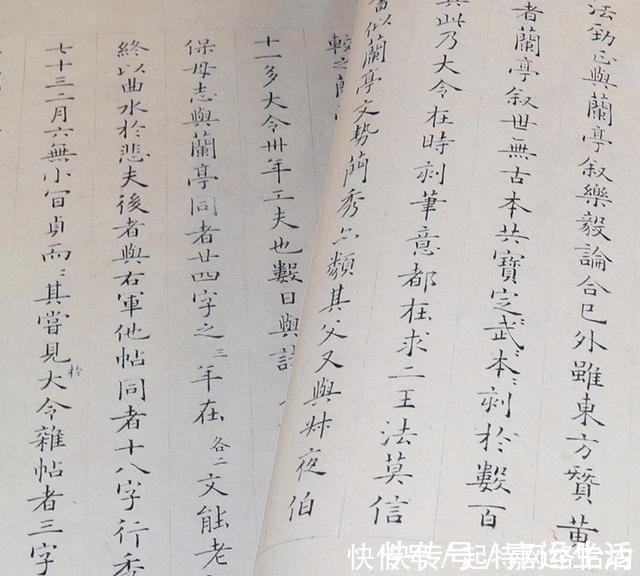 法勁正與蘭亭叙樂毅論合已外雖東方贊黃
者蘭亭叙世無古本共寶定武〻本〻刻於數百
此乃大令在時刻筆意都在求二王法莫信
似蘭亭文勢簡秀亦類其父又與叔夜伯
較之蘭
十一多大令卅年工夫也數日與
保母志與蘭亭同者廿四字之三年在各二文能老
終以曲水於悲夫後者與右軍他帖同者十八字行秀
七十三二月六無小貞而〻其嘗見於大令雜帖者三字